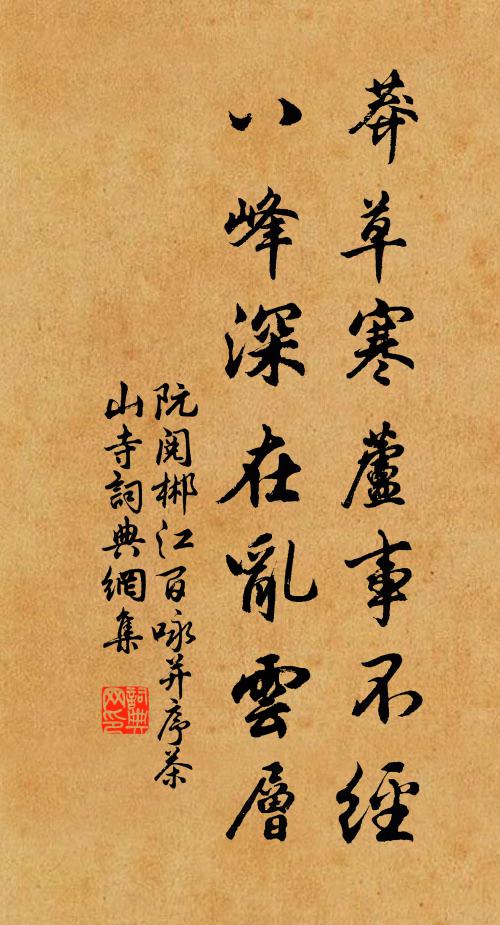 莽草寒蘆事不經
八峰深在亂雲層
阮閱郴江百咏并序茶
山寺詞典網集
詞典
网印